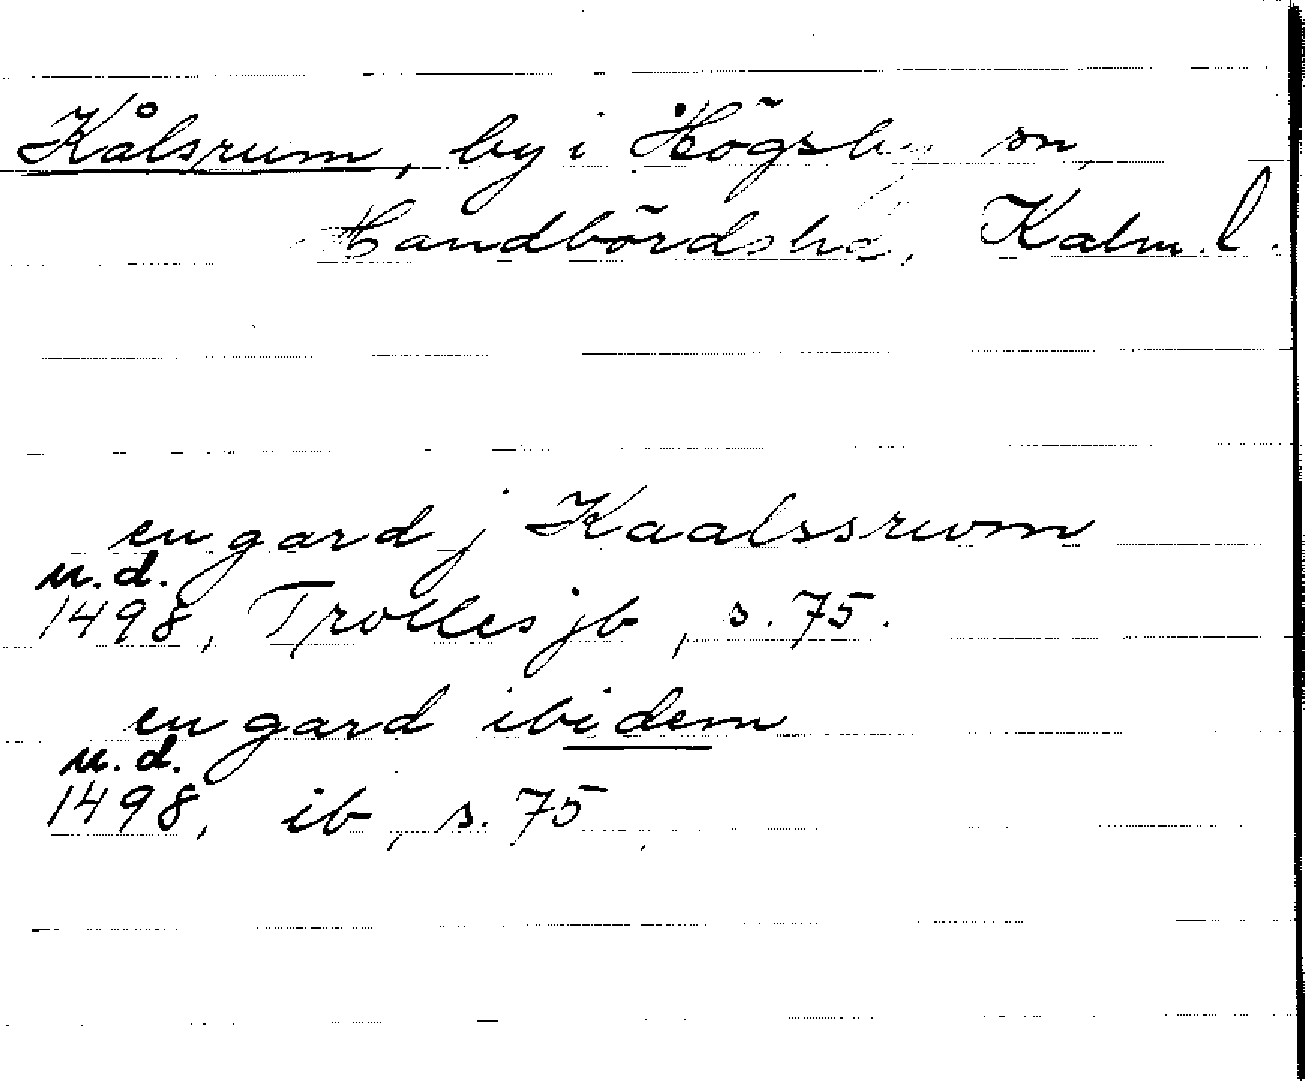 Kålsrum, by i Högsby sn,
Handbördshd, Kalm. l.
en gard j Kaalssrwm
u.d.
1498, Trolles jb, s. 75.
en gard ibidem
u.d.
1498, ib, s. 75.